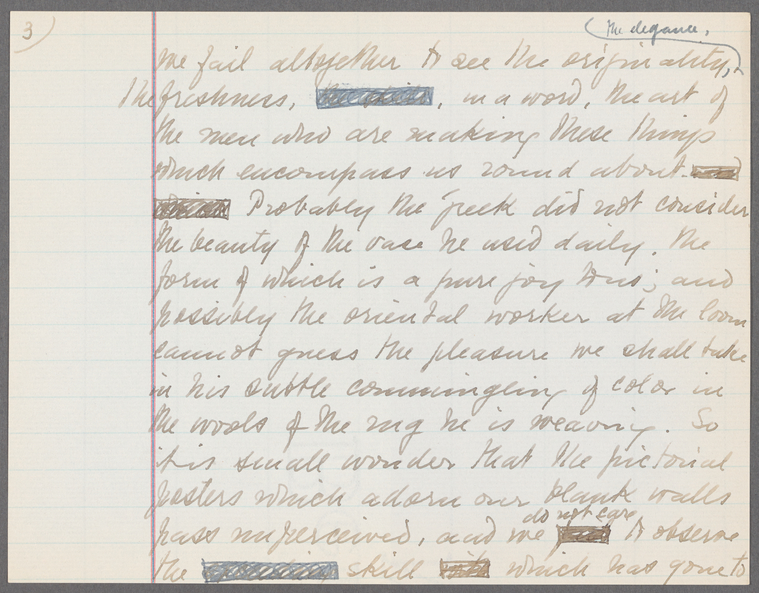 3
the elegance,
we fail altogether to see the originality,
the freshness, , in a word, the art of
the men who are making these things
which encompass us round about
Probably the Greek did not consider
the beauty of the vase he used daily, the
form of which is a pure joy to us; and
possibly the oriental worker at the loom
cannot guess the pleasure we shall take
in his subtle commingling of color in
the wools of the rug he is weaving. So
it is small wonder that the pictorial
posters which adorn our blank walls
do not care
pass unperceived, and we to observe
the skill which has gone to